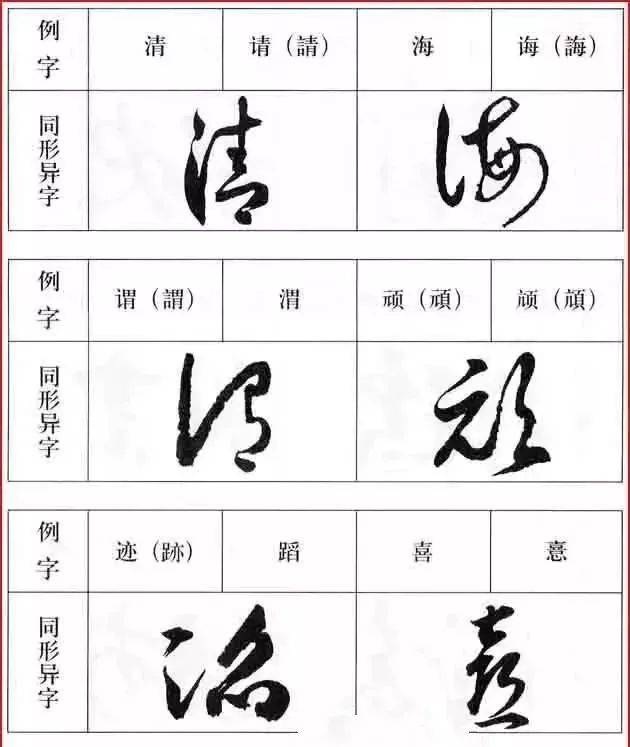 例字 清 请（請） 海 诲（誨）
同形异字
例字 谓（謂） 渭 顽（頑） 顽（頑）
同形异字
例字 迹（跡） 蹈 喜 憙
同形异字